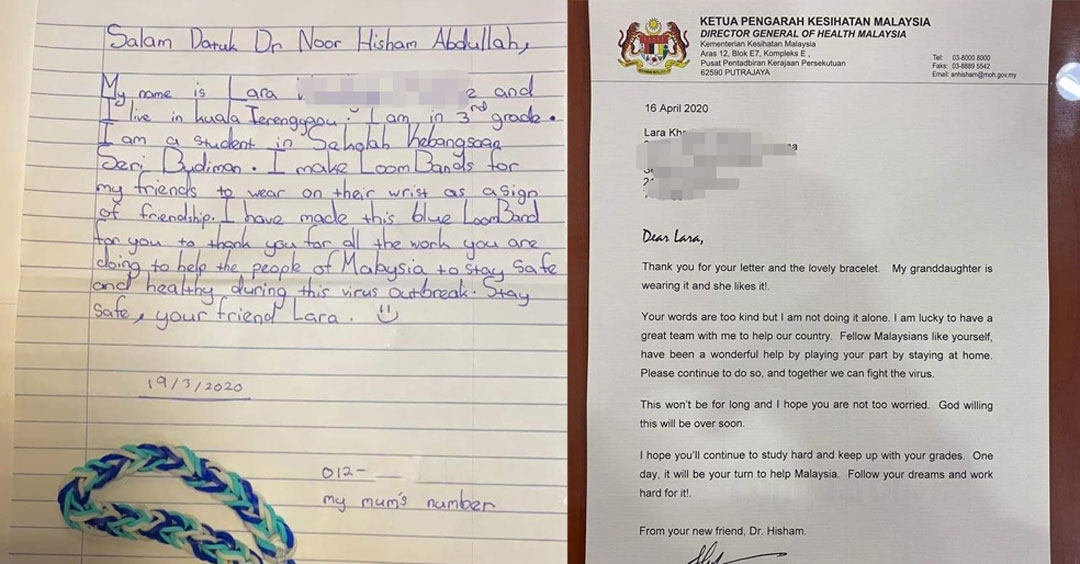 Salam Datuk Dr Noor Hisham Abdullah,
My name is Lara and
I live in Kuala Terengganu. I am in 3rd grade.
I am a student in Sekolah Kebangsaan
Seri Budiman. I make LoomBands for
my friends to wear on their wrist as a sign
of friendship. I have made this blue LoomBand
for you to thank you for all the work you are
doing to help the people of Malaysia to stay safe
and healthy during this virus outbreak. Stay
safe, your friend Lara.
19/3/2020
012-
my mum's number
KETUA PENGARAH KESIHATAN MALAYSIA
DIRECTOR GENERAL OF HEALTH MALAYSIA
Kementerian Kesihatan Malaysia
Aras 12, Blok E7, Kompleks E,
Pusat Pentadbiran Kerajaan Persekutuan
62590 PUTRAJAYA
Tel: 03-8000 8000
Faks: 03-8889 5542
Email: anhisham@moh.gov.my
16 April 2020
Lara
Dear Lara,
Thank you for your letter and the lovely bracelet. My granddaughter is
wearing it and she likes it!.
Your words are too kind but I am not doing it alone. I am lucky to have a
great team with me to help our country. Fellow Malaysians like yourself,
have been a wonderful help by playing your part by staying at home.
Please continue to do so, and together we can fight the virus.
This won't be for long and I hope you are not too worried. God willing
this will be over soon.
I hope you'll continue to study hard and keep up with your grades. One
day, it will be your turn to help Malaysia. Follow your dreams and work
hard for it!.
From your new friend, Dr. Hisham.